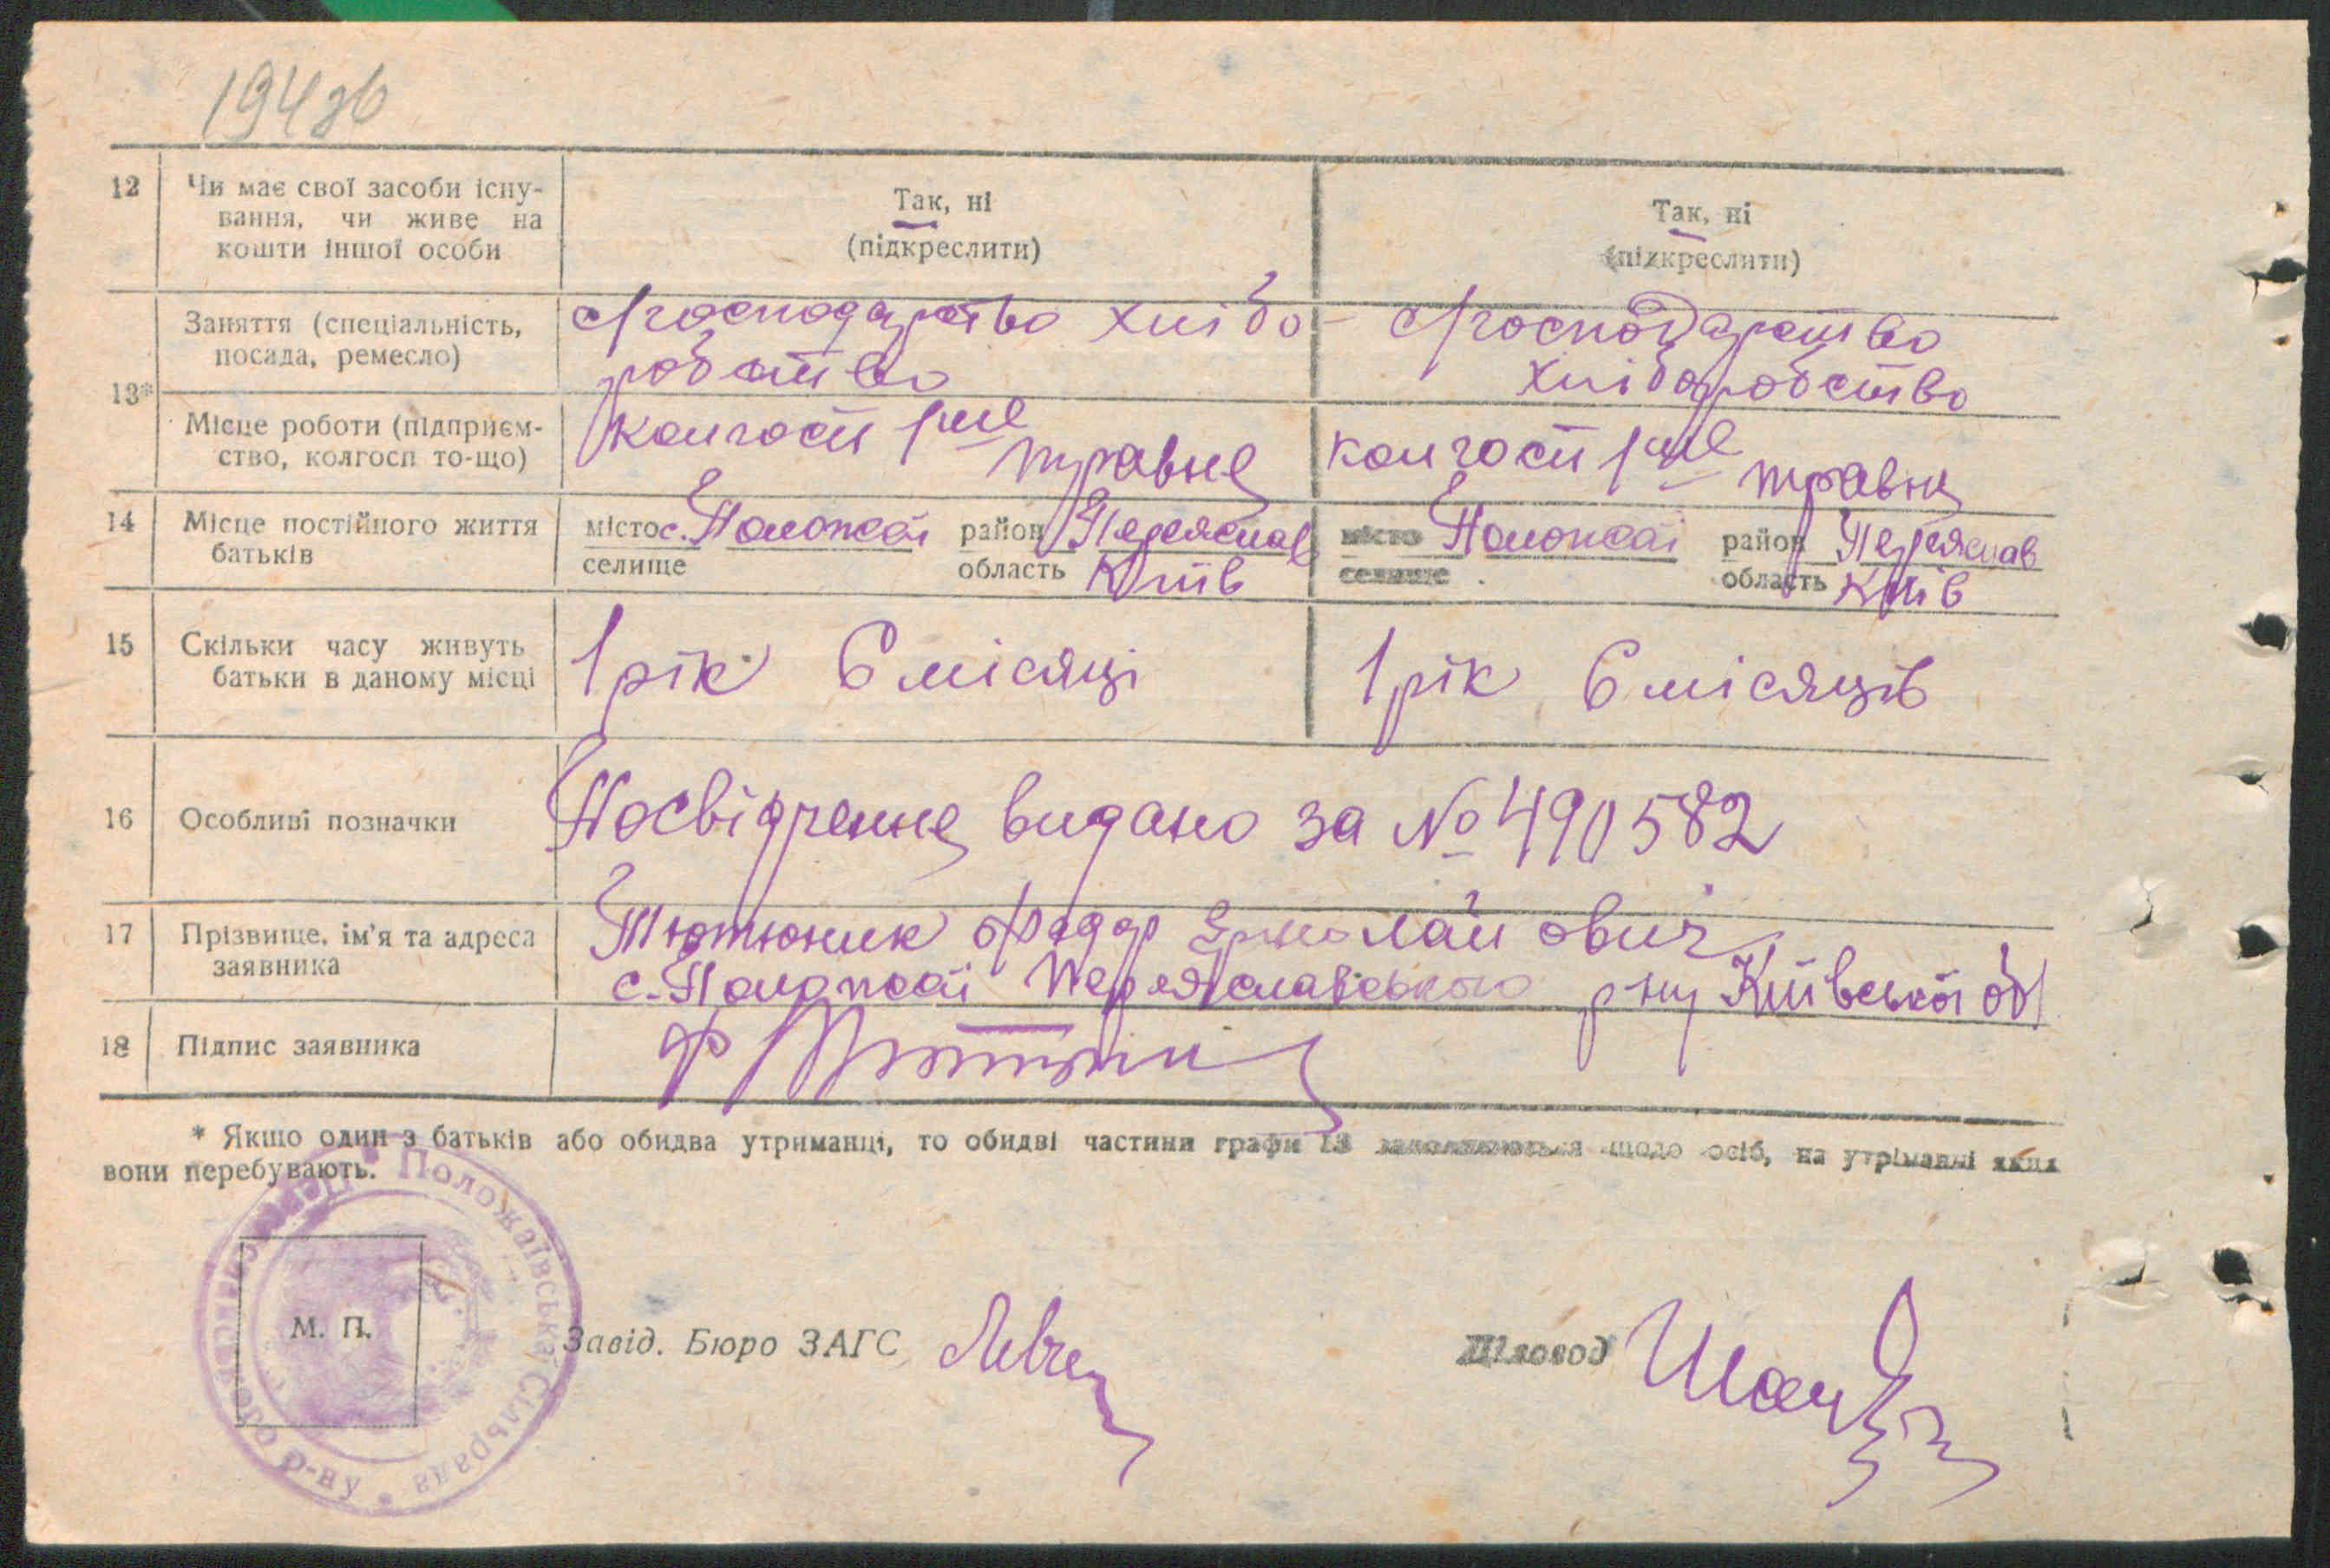 194зв
12 Чи має свої засоби існу- Так, ні Так, ні
вання, чи живе на (підкреслити) (підкреслити)
кошти іншої особи
13* Заняття (спеціальність, Господарство хлібо- Господарство
посада, ремесло) робство хлібаробство
Місце роботи (підприєм- колгосп 1ше колгосп 1ше
ство, колгосп то-що) травня травня
14 Місце постійного життя місто с. Положаї район Переяслав місто Положаї район Переяслав
батьків селище область Київ селище область Київ
15 Скільки часу живуть 1 рік 6 місяці 1 рік 6 місяців
батьки в даному місці
16 Особливі позначки Посвідчення видано за № 490582
17 Прізвище, ім'я та адреса Тютюник Федор Ермолайович
заявника с. Положаї Переяславського р-ну Київської об
18 Підпис заявника Ф
* Якщо один з батьків або обидва утриманці, то обидві частини графи 13 заповнюються щодо осіб, на утріманні яких
вони перебувають.
Положаївська Сільрада
р-ну
М. П.
Завід. Бюро ЗАГС Левче Діловод